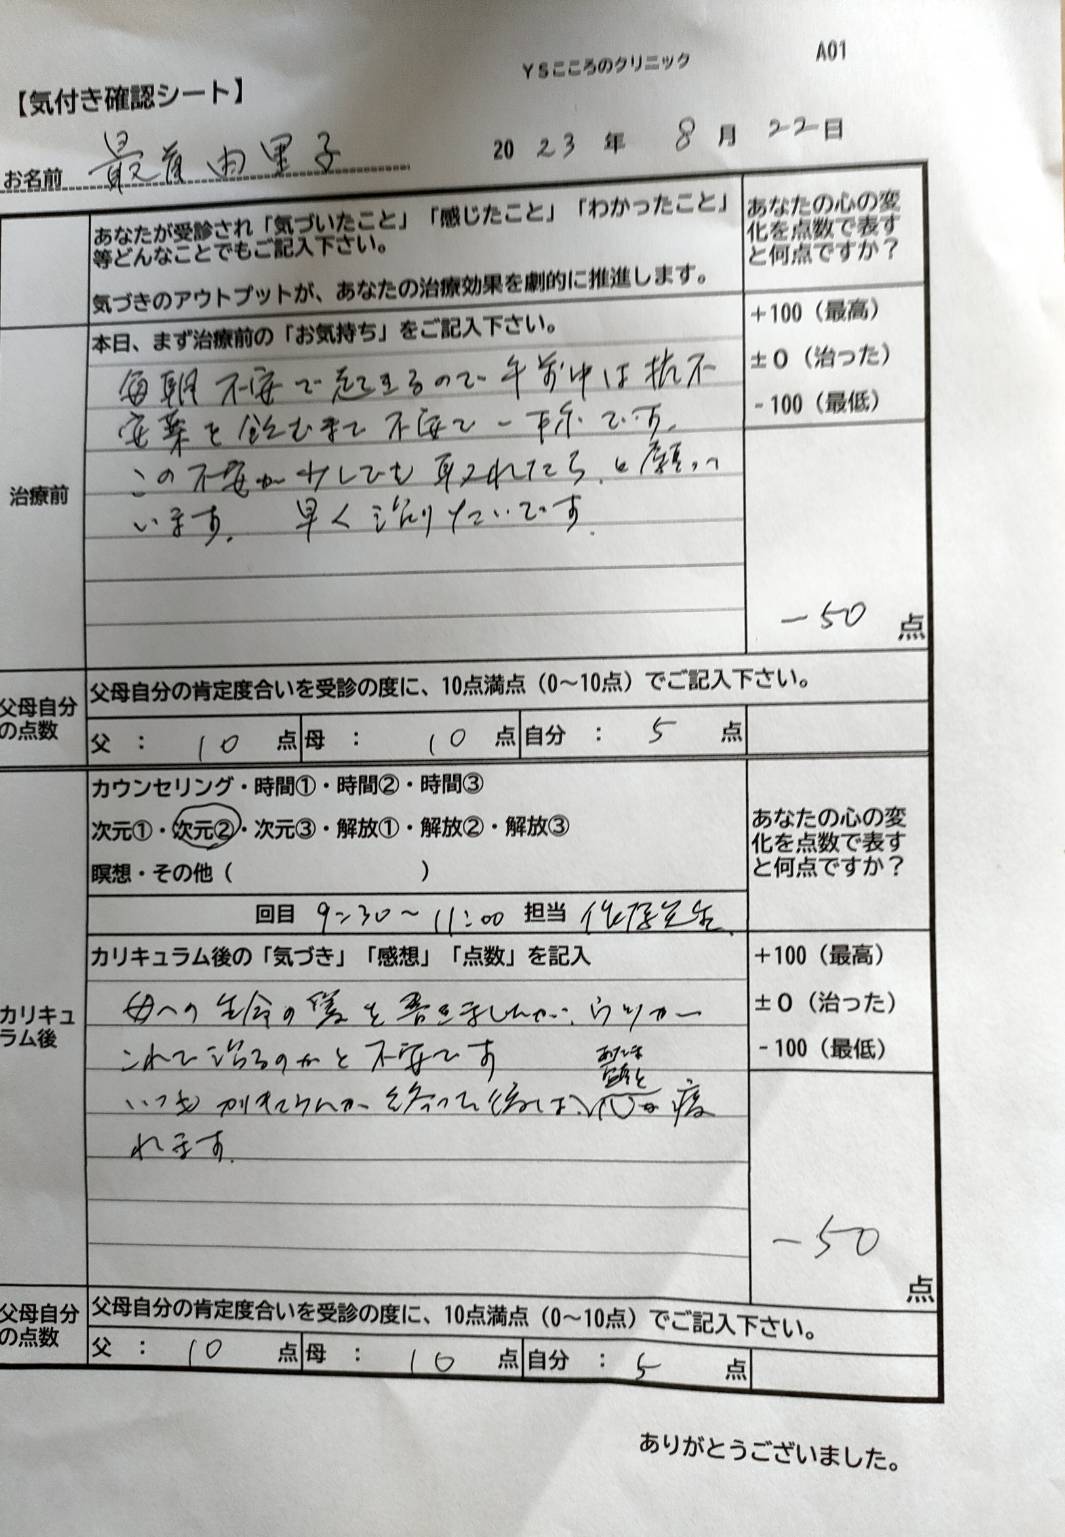 YSこころのクリニック
A01
【気付き確認シート】
2023年 8月 22日
お名前 最首由里子
あなたが受診され「気づいたこと」「感じたこと」「わかったこと」
等どんなことでもご記入下さい。
気づきのアウトプットが、あなたの治療効果を劇的に推進します。
あなたの心の変
化を点数で表す
と何点ですか？
治療前
本日、まず治療前の「お気持ち」をご記入下さい。
毎朝不安で起きるので午前中は抗不
安薬を飲むまで不安で一杯です。
この不安が少しでも取れたら、と願って
います。 早く治りたいです。
+100（最高）
±0（治った）
-100（最低）
-50 点
父母自分
の点数
父母自分の肯定度合いを受診の度に、10点満点（0～10点）でご記入下さい。
父 ： 10 点 母 ： 10 点 自分 ： 5 点
カリキュ
ラム後
カウンセリング・時間①・時間②・時間③
次元①・次元②・次元③・解放①・解放②・解放③
瞑想・その他（ ）
回目 9:30～11:00 担当
あなたの心の変
化を点数で表す
と何点ですか？
カリキュラム後の「気づき」「感想」「点数」を記入
母への生命の 書きましたが、
これで治るのかと不安です
いつも 終った後は、 疲
れます。
+100（最高）
±0（治った）
-100（最低）
-50
点
父母自分
の点数
父母自分の肯定度合いを受診の度に、10点満点（0～10点）でご記入下さい。
父 ： 10 点 母 ： 10 点 自分 ： 5 点
ありがとうございました。